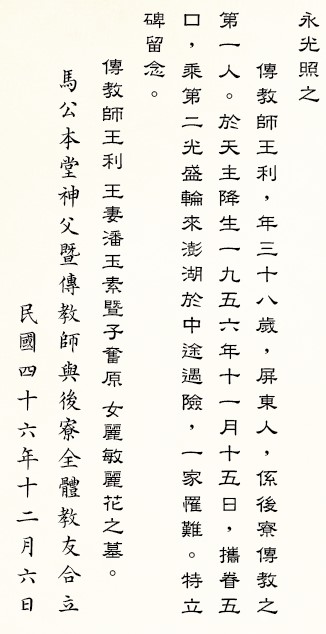 永光照之
傳教師王利，年三十八歲，屏東人，係後寮傳教之
第一人。於天主降生一九五六年十一月十五日，攜眷五
口，乘第二光盛輪來澎湖於中途遇險，一家罹難。特立
碑留念。
傳教師王利 王妻潘玉素暨子奮原 女麗敏麗花之墓。
馬公本堂神父暨傳教師與後寮全體教友合立
民國四十六年十二月六日